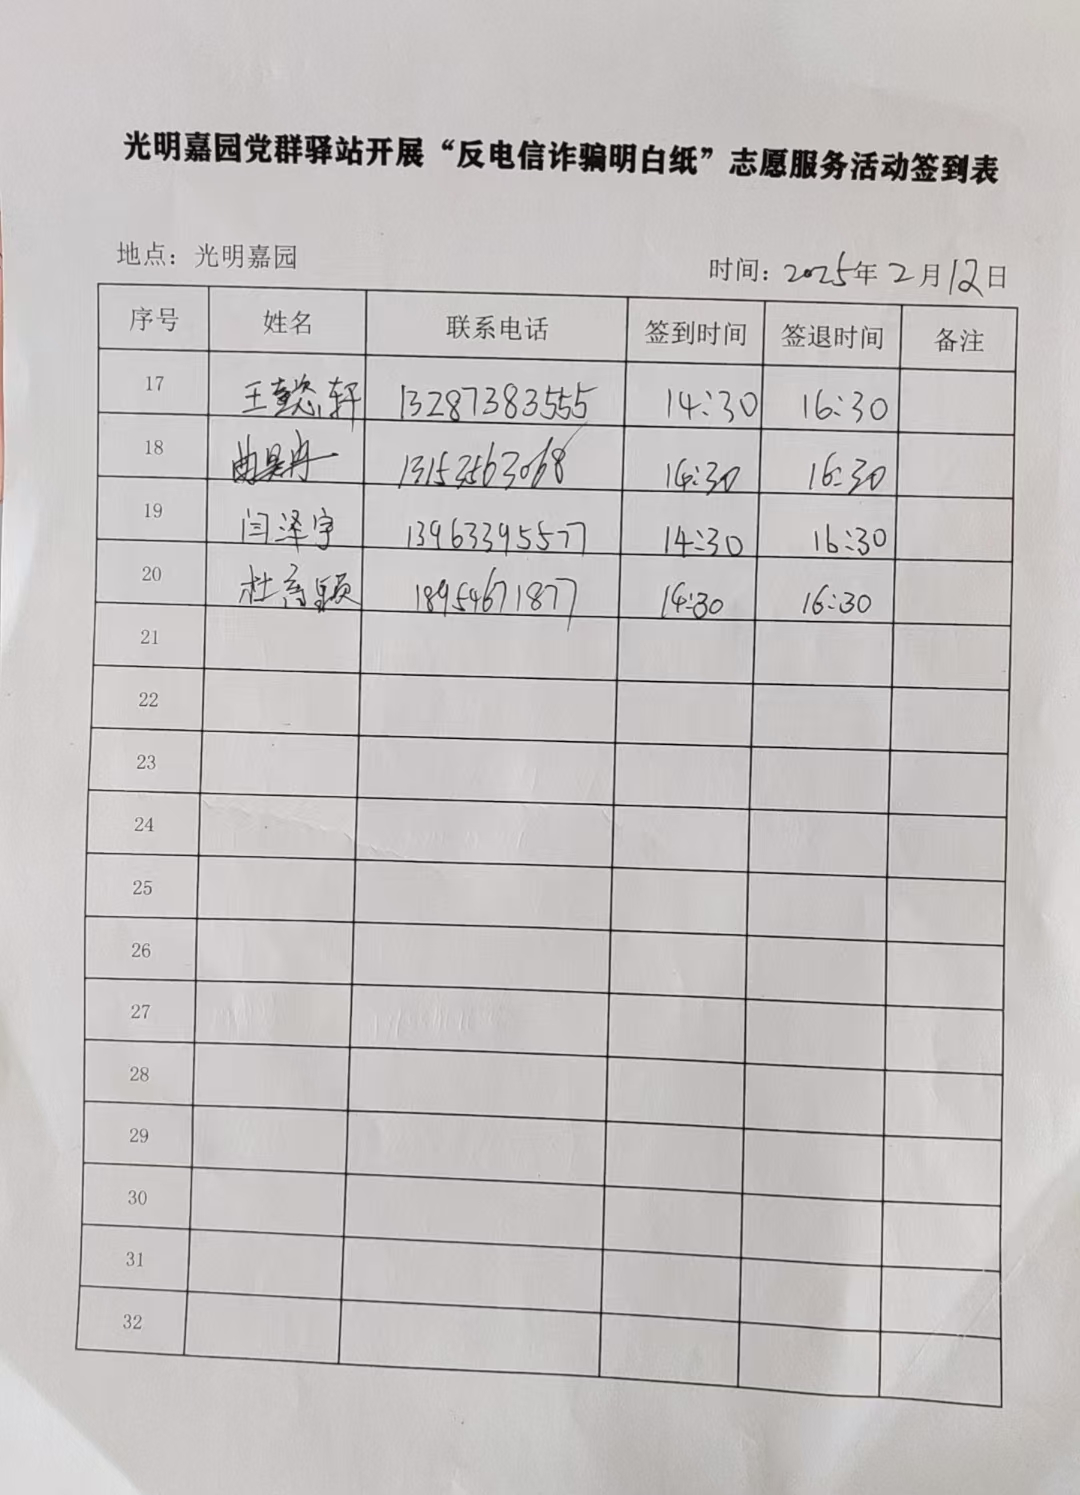 光明嘉园党群驿站开展“反电信诈骗明白纸”志愿服务活动签到表
地点：光明嘉园
时间：2025年2月12日
序号 姓名 联系电话 签到时间 签退时间 备注
17 王懿轩 13287383555 14:30 16:30
18 曲昊冉 13153563068 14:30 16:30
19 闫泽宇 13963395577 14:30 16:30
20 杜 颖 18954671877 14:30 16:30
21
22
23
24
25
26
27
28
29
30
31
32